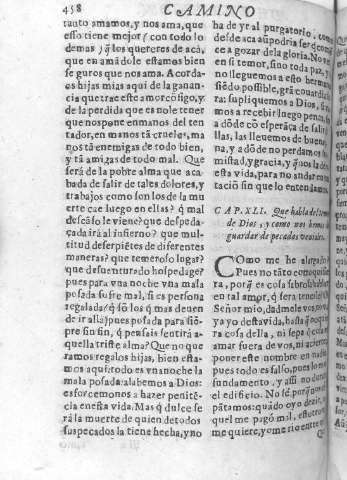 458
CAMINO
tanto amamos, y nos ama, que
esso tiene mejor (con todo lo
demas) q̃ los quereres de acà,
que en amãdole estamos bien
seguros que nos ama. Acordaos
hijas mias aqui de la ganancia
que trae este amor cõsigo, y
de la perdida que es no le tener
que nos pone en manos del tentador,
en manos tã crueles, manos
tã enemigas de todo bien,
y tã amigas de todo mal. Que
serà de la pobre alma que acabada
de salir de tales dolores, y
trabajos como son los de la muerte
cae luego en ellas? q̃ mal
descãso le viene? que despedaçada
irà al infierno? que multitud
de serpiẽtes de diferentes
maneras? que temeroso lugar?
que desuenturado hospedage?
pues para vna noche vna mala
posada sufre mal, si es persona
regalada (q̃ sõ los q̃ mas deuen
de ir allà) pues posada para siẽpre
sin fin, q̃ pensais sentirà aquella
triste alma? Que no queramos
regalos hijas, bien estamos
aqui: todo es vna noche la
mala posada: alabemos a Dios:
esforcemonos a hazer penitẽcia
en esta vida. Mas q̃ dulce serà
la muerte de quien de todos
sus pecados la tiene hecha, y no
ha de yr al purgatorio, como
desde acà aũ podria ser q̃
a gozar de la gloria. No
en si temor, sino toda paz, y
no lleguemos a esto hermanas
siẽdo possible, grã couardia
ra: supliquemos a Dios, si
mos a recebir luego penas, sea
a dõde cõ esperãça de salir
llas, las lleuemos de buena
y a dõde no perdamos su
mistad, y gracia, y q̃ nos la dè
esta vida, para no andar en tentaciõ
sin que lo entendamos.
CAP. XLI. Que habla del
de Dios, y como nos hemos
guardar de pecados veniales.
COmo me he alargado?
Pues no tãto como quisiera,
porq̃ es cosa sabrosa hablar
en tal amor, q̃ serà tenerle?
Señor mio, dadmele vos, no
ya yo desta vida, hasta q̃ no
ra cosa della, ni sepa q̃ cosa
amar fuera de vos, ni acierte
poner este nombre en nadie,
pues todo es falso, pues lo
fundamento, y assi no durarà
el edificio. No sè porq̃ nos
pãtamos: quãdo oyo dezir,
quel me pagò mal, estotro
me quiere, yo me rio entre mi